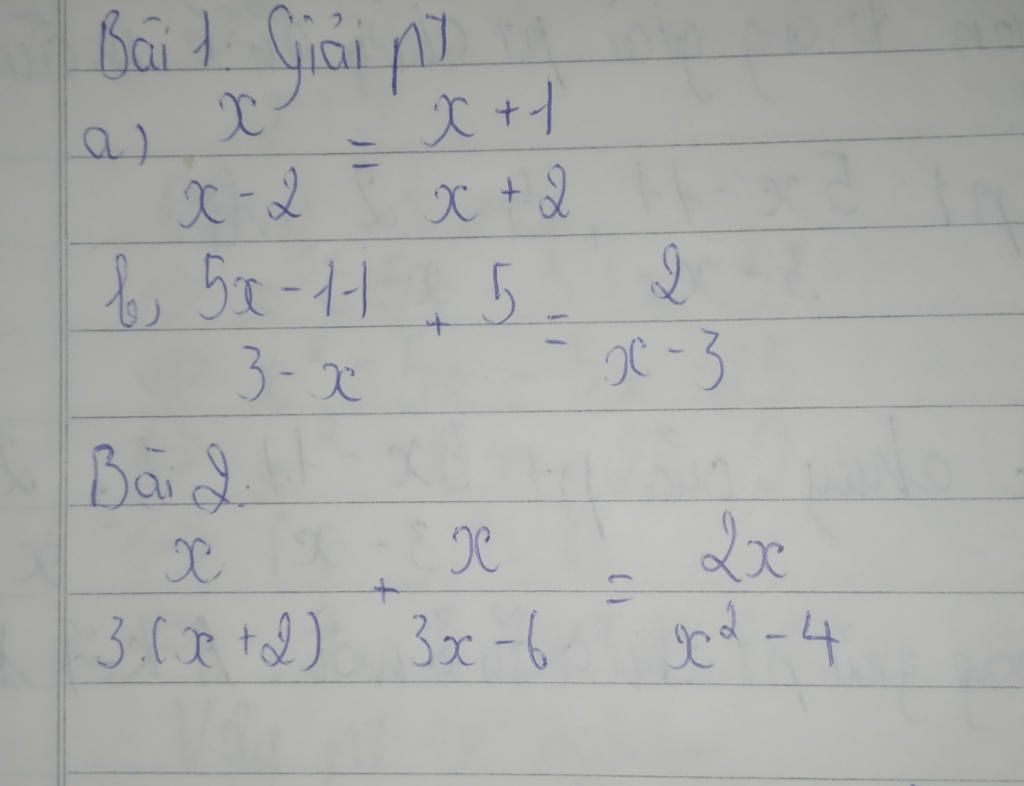 Bài 1. Giải pt
a) x/(x-2) = (x+1)/(x+2)
b, (5x-11)/(3-x) + 5 = 2/(x-3)
Bài 2.
x/(3.(x+2)) + x/(3x-6) = 2x/(x²-4)